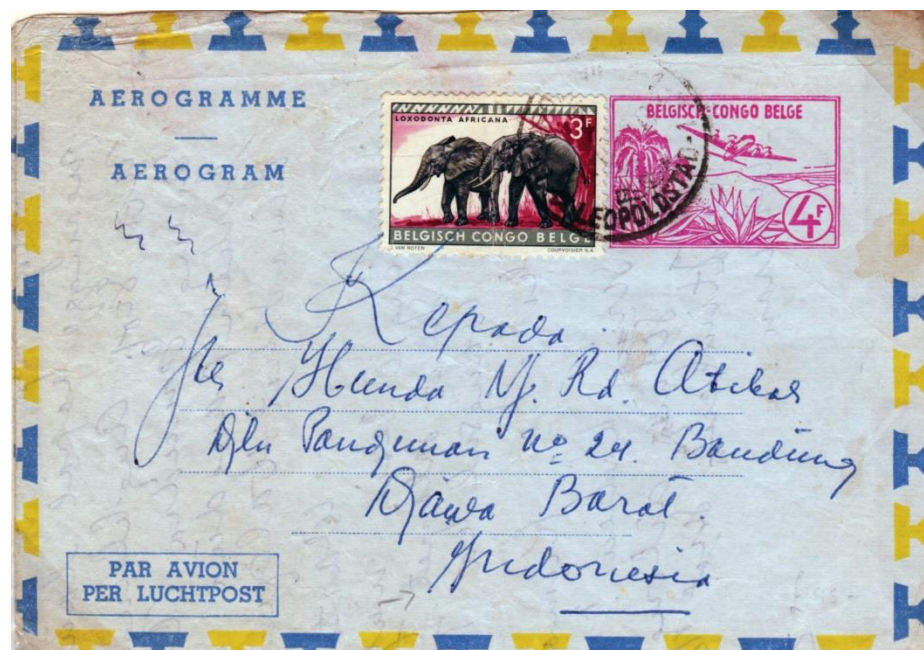 AEROGRAMME
AEROGRAM
LOXODONTA AFRICANA
3F
BELGISCH CONGO BELGE
J. VAN NOTEN
COURVOISIER S.A.
BELGISCH-CONGO BELGE
4F
LEOPOLDSTAD
Kepada
Ibunda Nj. Rd.
Djln No 24. Bandung
Djawa Barat
Indonesia
PAR AVION
PER LUCHTPOST